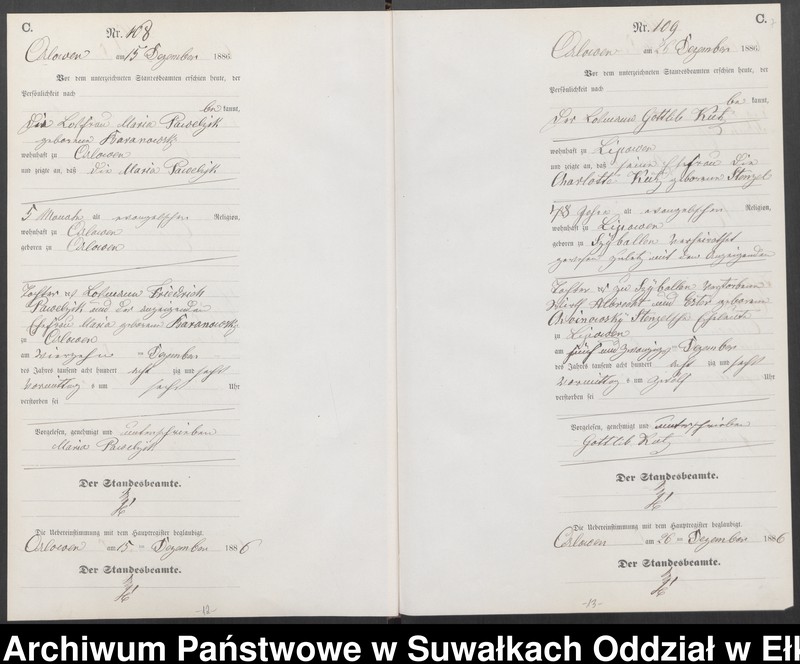 C.
Nr. 108
Orlowen am 15 Dezember 1886
Vor dem unterzeichneten Standesbeamten erschien heute, der
Persönlichkeit nach
be kannt,
Die Losfrau Maria Pawelzik
geborene Baranowski
wohnhaft zu Orlowen
und zeigte an, daß die Maria Pawelzik
5 Monate alt evangelischer Religion,
wohnhaft zu Orlowen
geboren zu Orlowen
Tochter des Losmann Friedrich
Pawelzik und der anzeigenden
Ehefrau Maria geborene Baranowski
zu Orlowen
am vierzehn ten Dezember
des Jahres tausend acht hundert acht zig und sechs
Vormittag s um sechs Uhr
verstorben sei
Vorgelesen, genehmigt und unterschrieben
Maria Pawelzik
Der Standesbeamte.
Die Uebereinstimmung mit dem Hauptregister beglaubigt.
Orlowen am 15 ten Dezember 1886
Der Standesbeamte.
-12-
C.
Nr. 109
Orlowen am 26 Dezember 1886
Vor dem unterzeichneten Standesbeamten erschien heute, der
Persönlichkeit nach
be kannt,
Der Losmann Gottlieb Kutz
wohnhaft zu Lipowen
und zeigte an, daß seine Ehefrau die
Charlotte Kutz geborene Stenzel
48 Jahre alt evangelischer Religion,
wohnhaft zu Lipowen
geboren zu Szyballen verheirathet
gewesen zuletzt mit dem Anzeigenden
Tochter der zu Szyballen verstorbenen
Albrecht und geborene
Stenzelsche Eheleute
zu Lipowen
am fünf und zwanzig ten Dezember
des Jahres tausend acht hundert acht zig und sechs
Vormittag s um zwölf Uhr
verstorben sei
Vorgelesen, genehmigt und unterschrieben
Gottlieb Kutz
Der Standesbeamte.
Die Uebereinstimmung mit dem Hauptregister beglaubigt.
Orlowen am 26 ten Dezember 1886
Der Standesbeamte.
-13-
Archiwum Państwowe w Suwałkach Oddział w Ełk